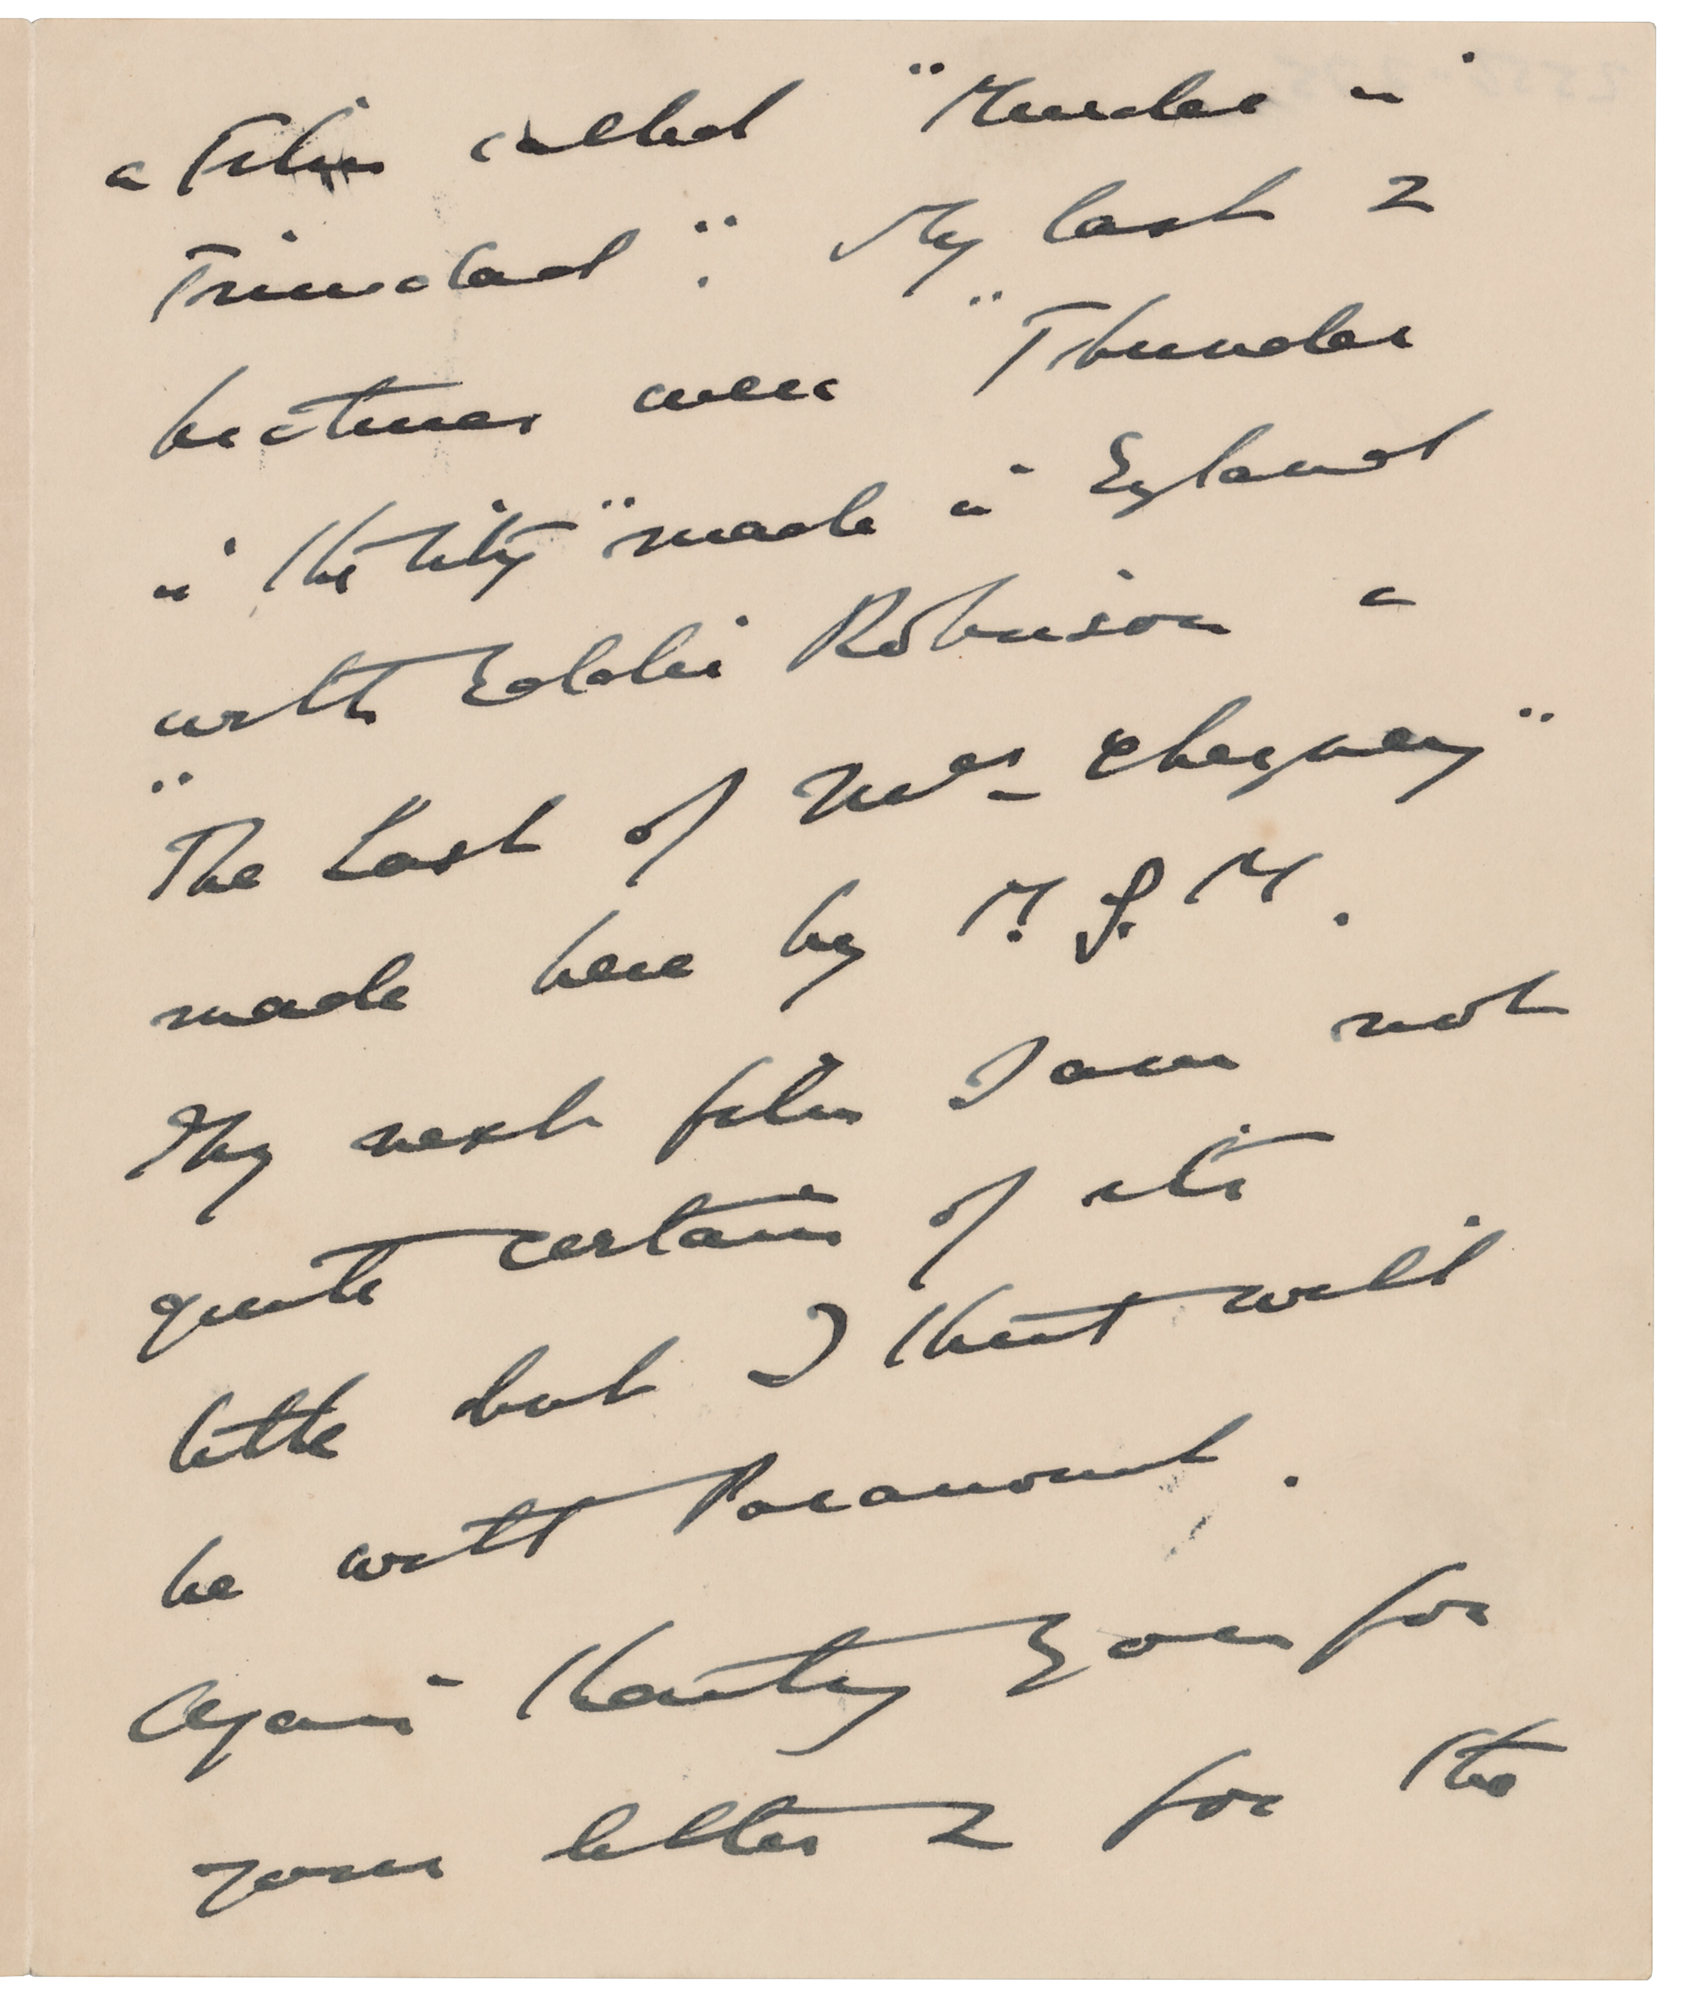 a Film called "Murder in
Trinidad". My last 2
pictures were "Thunder
in the City" made in England
with Eddie Robinson &
"The Last of Mrs Cheyney"
made here by M.G.M.
My next film I am not
quite certain of its
title but I think will
be with Paramount.
Again thanking you for
your letter & for the